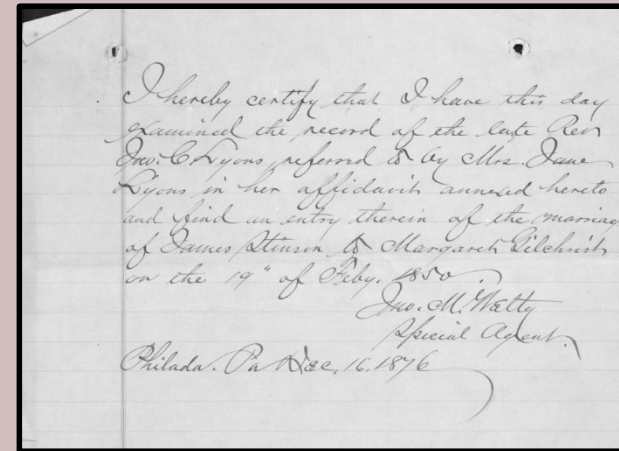 I hereby certify that I have this day
examined the record of the late Rev
Jno. C. Lyons, referred to by Mrs. Jane
Lyons in her affidavit annexed hereto
and find an entry therein of the marriag
of James Stinson to Margaret Gilchrist
on the 19" of Feby. 1850.
Jno. M.
Special Agent.
Philada. Pa Dec, 16. 1876